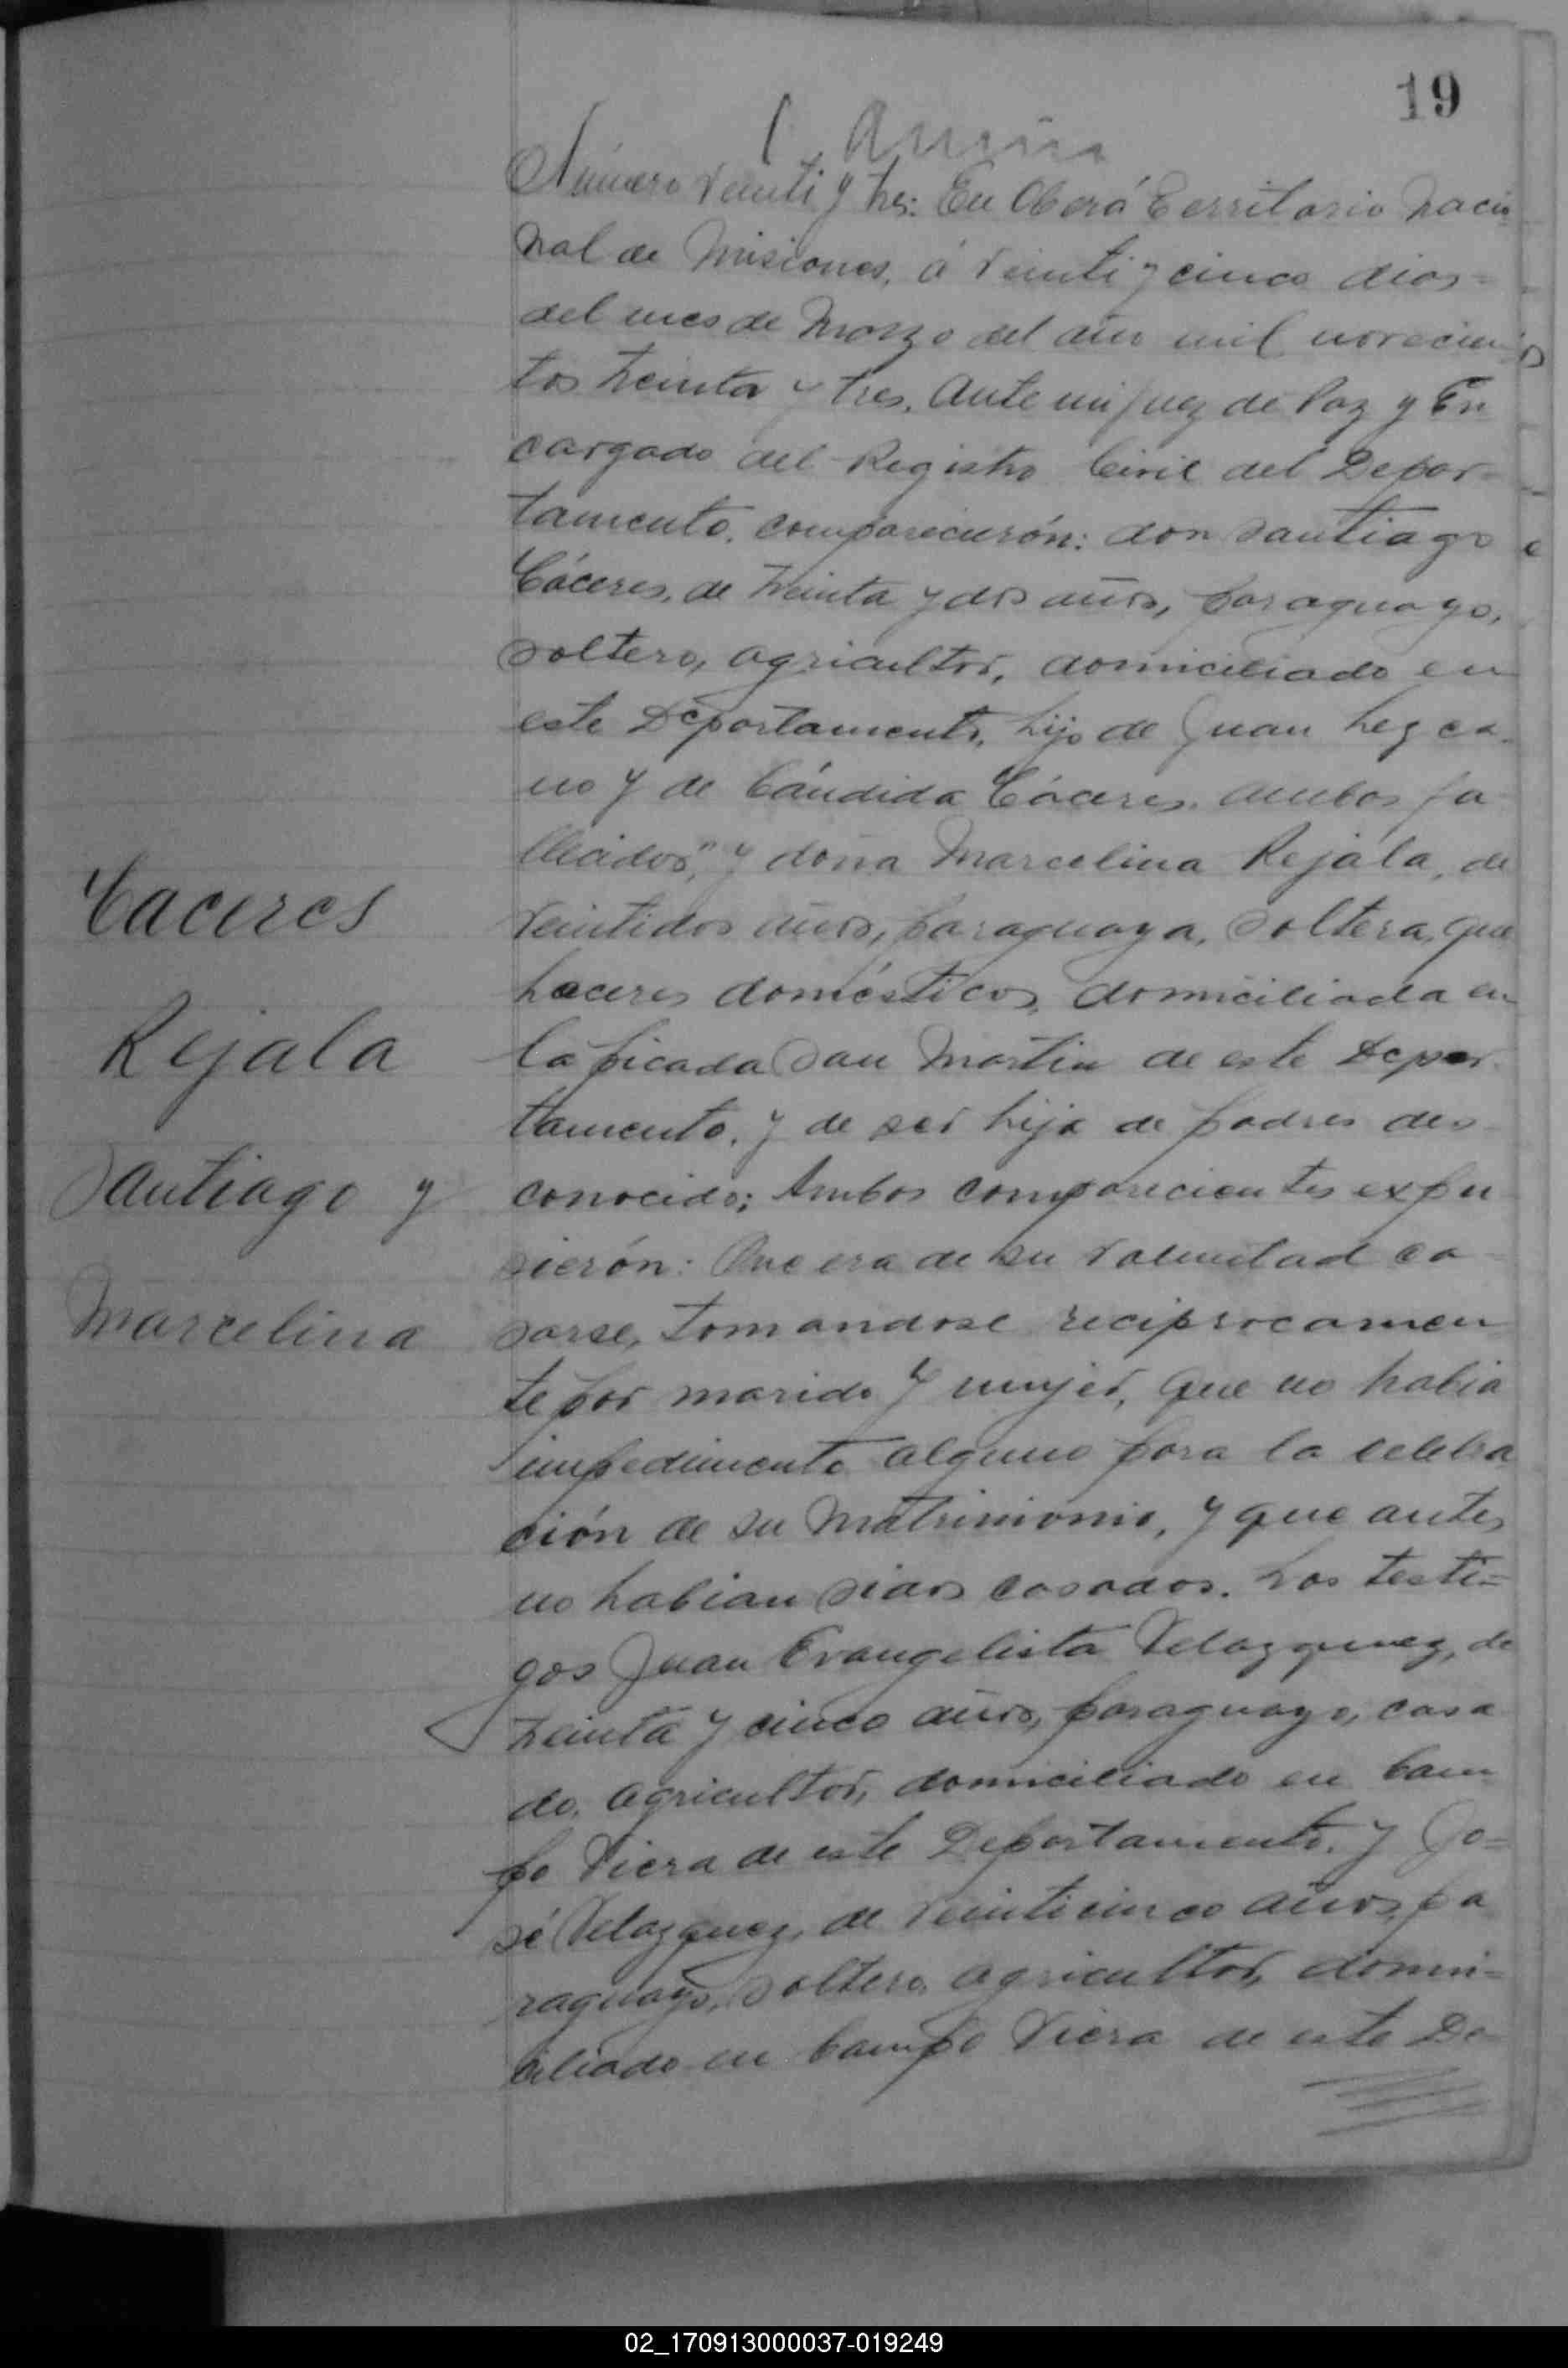 19
Número veinti y tres: En Oberá Territorio nacio-
nal de Misiones, á veinti y cinco dias=
del mes de Marzo del año mil novecien-
tos treinta y tres. Ante mi Juez de Paz y En-
cargado del Registro Civil del Depar-
tamento, comparecierón: don Santiago
Cáceres, de treinta y dos años, paraguayo,
soltero, agricultor, domiciliado en
este Departamento, hijo de Juan Lezca-
no y de Cándida Cáceres, ambos fa-
llecidos," y doña Marcelina Rejála, de
veintidos años, paraguaya, soltera, que-
haceres domésticos, domiciliada en
la picada San Martin de este Depar-
tamento, y de ser hija de padres des-
conocido; Ambos comparecientes expu-
sierón: Que era de su voluntad ca-
sarse, tomandose reciprocamen-
te por marido y mujer, que no habia
impedimento alguno para la celebra-
ción de su Matrimonio, y que antes
no habian sidos casados. Los testi=
gos Juan Evangelista Velazquez, de
treinta y cinco años, paraguayo, casa-
do, agricultor, domiciliado en Cam-
po Viera de este Departamento, y Jo=
sé Velazquez, de veinticinco años, pa-
raguayo, soltero, agricultor, domi=
ciliado en Campo Viera de este De=
Caceres
Rejala
Santiago y
Marcelina
02_170913000037-019249